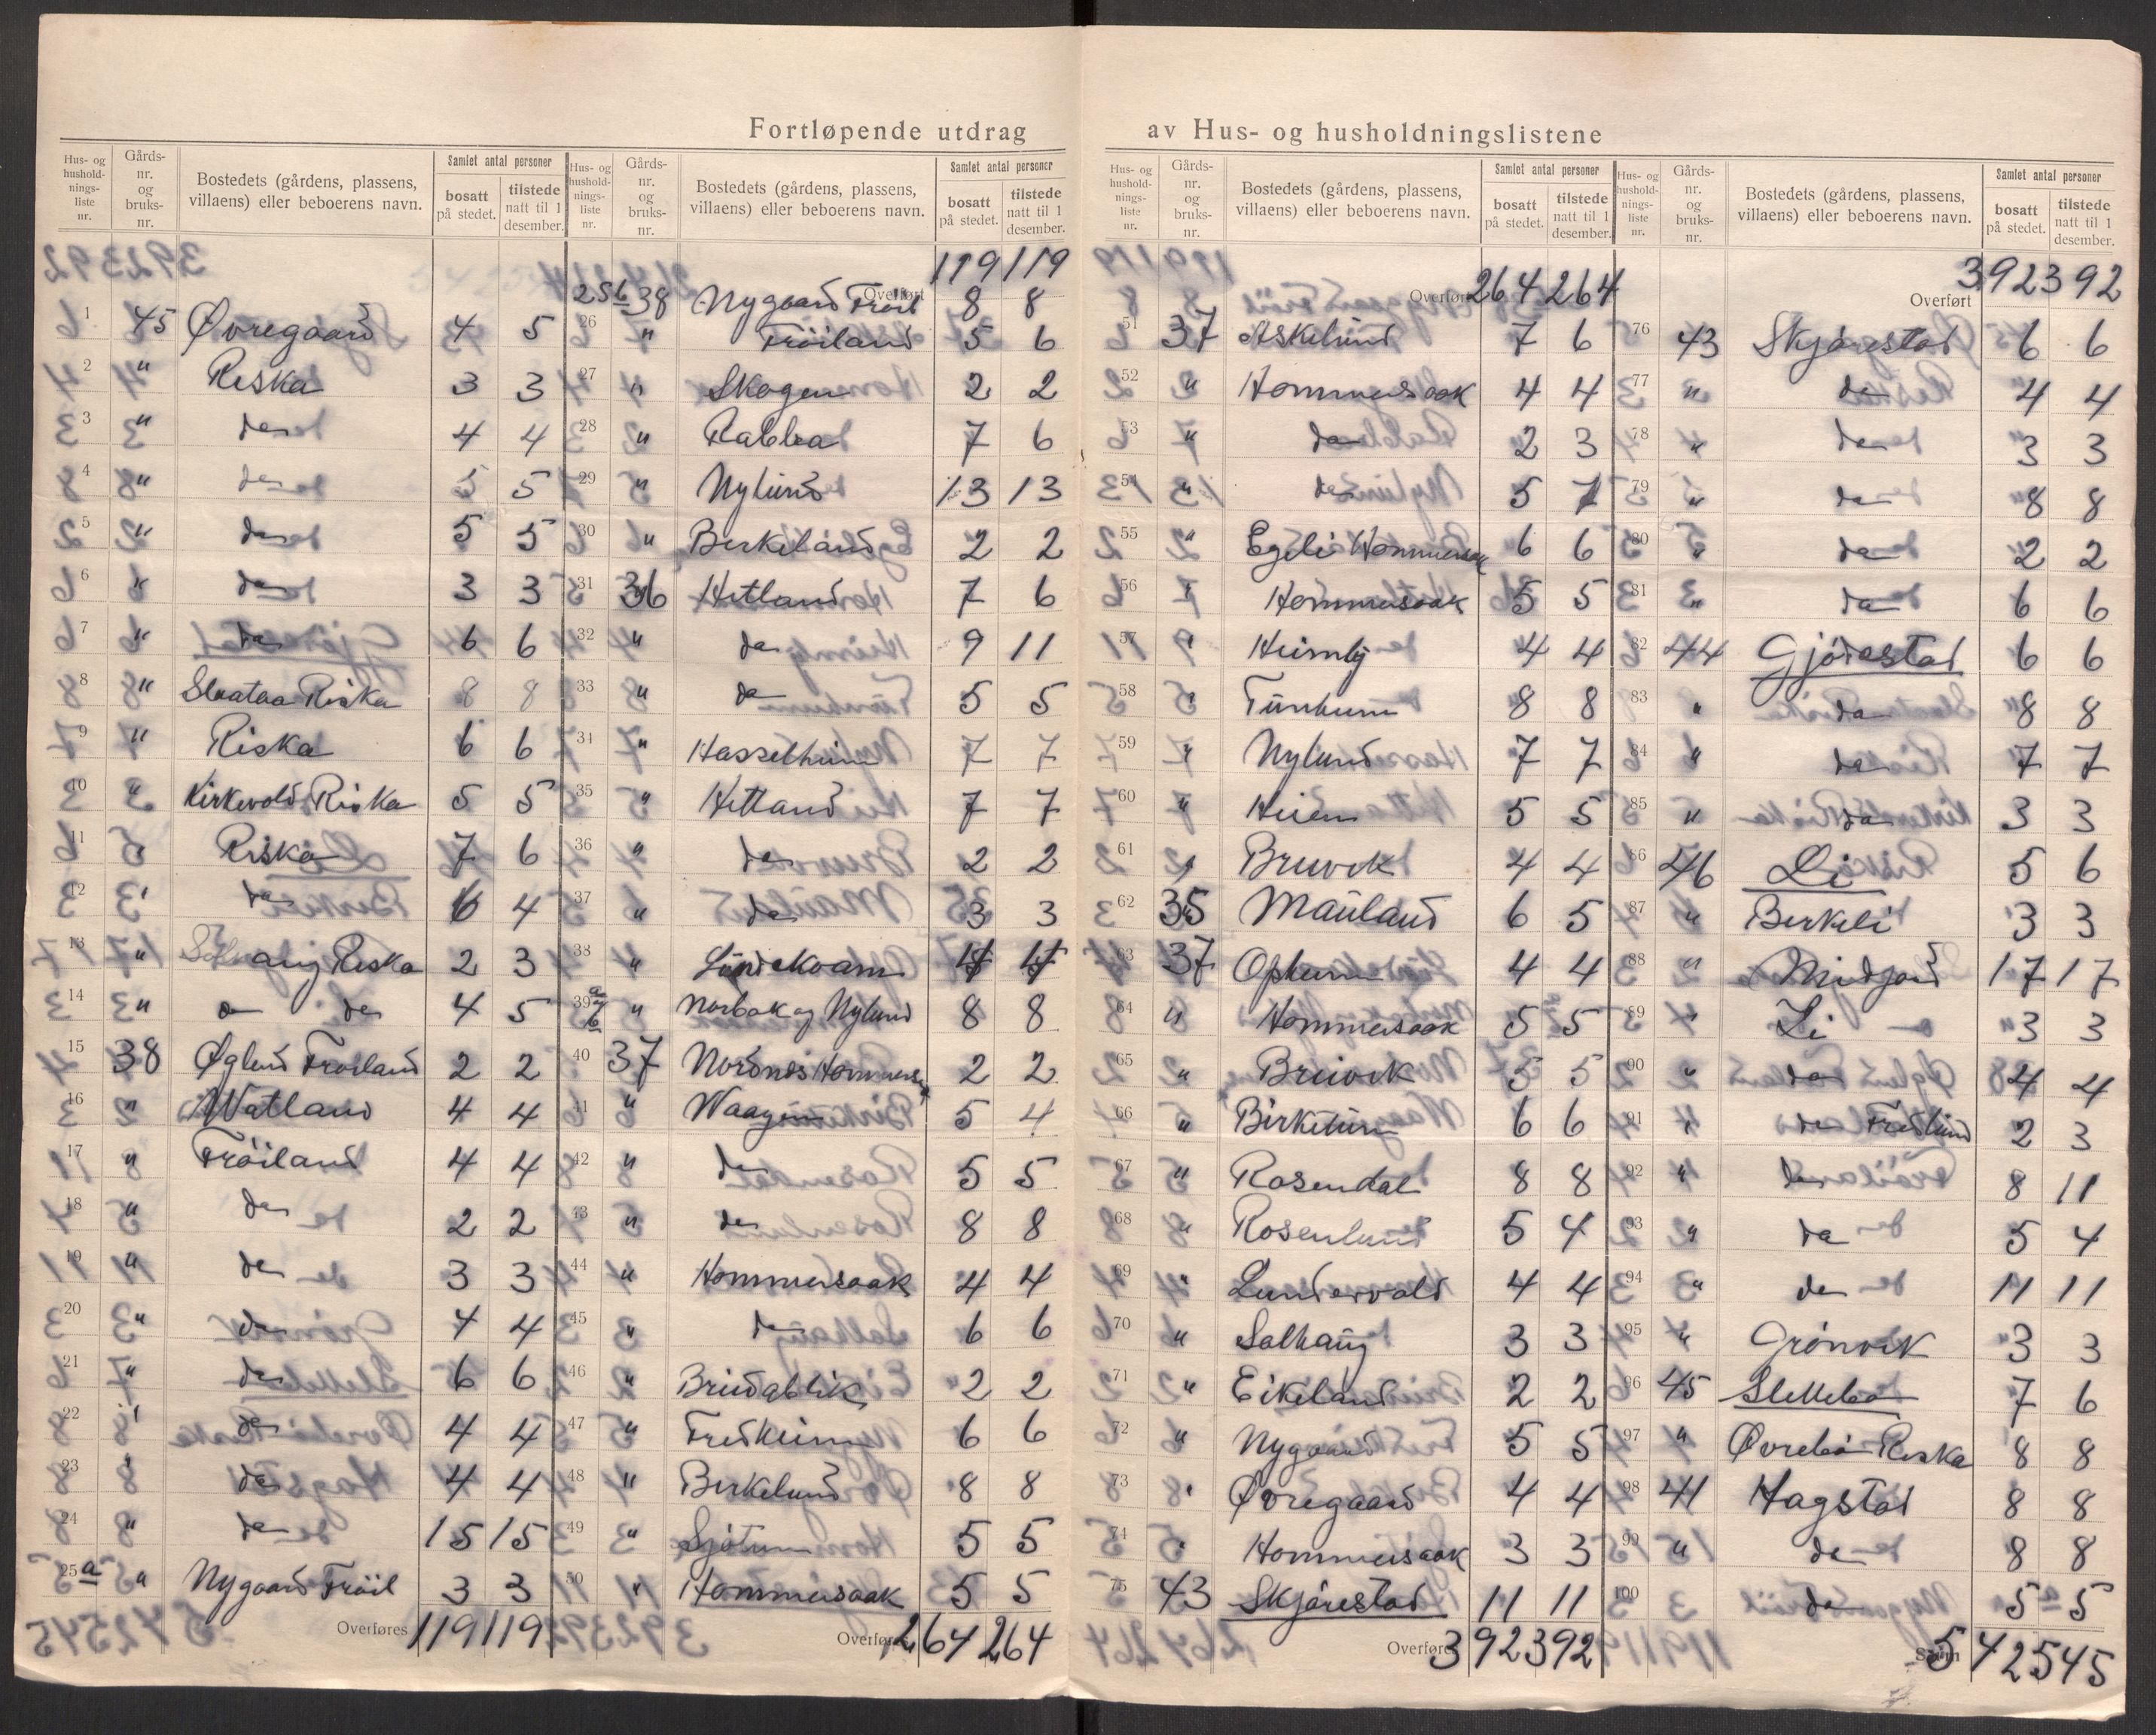 Fortløpende utdrag av Hus- og husholdningslistene
Hus- og hushold- nings- liste nr. | Gårds- nr. og bruks- nr. | Bostedets (gårdens, plassens, villaens) eller beboerens navn. | Samlet antal personer | bosatt på stedet. | tilstede natt til 1 desember.
1 45 Øvregaard 4 5
2 " Riska 3 3
3 " do 4 4
4 " do 5 5
5 " do 5 5
6 " do 3 3
7 " do 6 6
8 " Slaataa Riska 8 8
9 " Riska 6 6
10 " Kirkevold Riska 5 5
11 " Riska 7 6
12 " do 6 4
13 " Solhaug Riska 2 3
14 " do 4 5
15 38 Øglend Fröiland 2 2
16 " Watland 4 4
17 " Fröiland 4 4
18 " do 2 2
19 " do 3 3
20 " do 4 4
21 " do 6 6
22 " do 4 4
23 " do 4 4
24 " do 15 15
25 a " Nygaard Fröil 3 3
Overføres 119 119
Hus- og hushold- nings- liste nr. | Gårds- nr. og bruks- nr. | Bostedets (gårdens, plassens, villaens) eller beboerens navn. | Samlet antal personer | bosatt på stedet. | tilstede natt til 1 desember.
Overført 119 119
25 b 38 Nygaard Fröil 8 8
26 " Fröiland 5 6
27 " Skogen 2 2
28 " Rabba 7 6
29 " Nylund 13 13
30 " Berkeland 2 2
31 36 Hetland 7 6
32 " do 9 11
33 " do 5 5
34 " Hasselheim 7 7
35 " Hetland 7 7
36 " do 2 2
37 " do 3 3
38 " Lindekvam 4 4
39 a b " Norbak og Nylund 8 8
40 37 Nordnes Hommers 2 2
41 " Waagen 5 4
42 " do 5 5
43 " do 8 8
44 " Hommersaak 4 4
45 " do 6 6
46 " Breidablik 2 2
47 " Fredheim 6 6
48 " Berkelund 8 8
49 " Sjötun 5 5
50 " Hommersaak 5 5
Overføres 264 264
Hus- og hushold- nings- liste nr. | Gårds- nr. og bruks- nr. | Bostedets (gårdens, plassens, villaens) eller beboerens navn. | Samlet antal personer | bosatt på stedet. | tilstede natt til 1 desember.
Overført 264 264
51 37 Askelund 7 6
52 " Hommersaak 4 4
53 " do 2 3
54 " do 5 7
55 " Egeli Hommersaak 6 6
56 " Hommersaak 5 5
57 " Heimly 4 4
58 " Tunheim 8 8
59 " Nylund 7 7
60 " Heien 5 5
61 " Breivik 4 4
62 35 Mauland 6 5
63 37 Opheim 4 4
64 " Hommersaak 5 5
65 " Breivik 5 5
66 " Birketun 6 6
67 " Rosendal 8 8
68 " Rosenlund 5 4
69 " Lundervold 4 4
70 " Solhaug 3 3
71 " Eikeland 2 2
72 " Nygaard 5 5
73 " Øvregaard 4 4
74 " Hommersaak 3 3
75 43 Skjørestad 11 11
Overføres 392 392
Hus- og hushold- nings- liste nr. | Gårds- nr. og bruks- nr. | Bostedets (gårdens, plassens, villaens) eller beboerens navn. | Samlet antal personer | bosatt på stedet. | tilstede natt til 1 desember.
Overført 392 392
76 43 Skjørestad 6 6
77 " do 4 4
78 " do 3 3
79 " do 8 8
80 " do 2 2
81 " do 6 6
82 44 Gjørestad 6 6
83 " do 8 8
84 " do 7 7
85 " do 3 3
86 46 Li 5 6
87 " Berkeli 3 3
88 " Midjord 17 17
89 " Li 3 3
90 " do 4 4
91 " do Fredlund 2 3
92 " do 8 11
93 " do 5 4
94 " do 11 11
95 " Grönvik 3 3
96 45 Slettebö 7 6
97 " Øvrebö Riska 8 8
98 41 Hagstad 8 8
99 " do 8 8
100 do 5 5
Sum 542 545